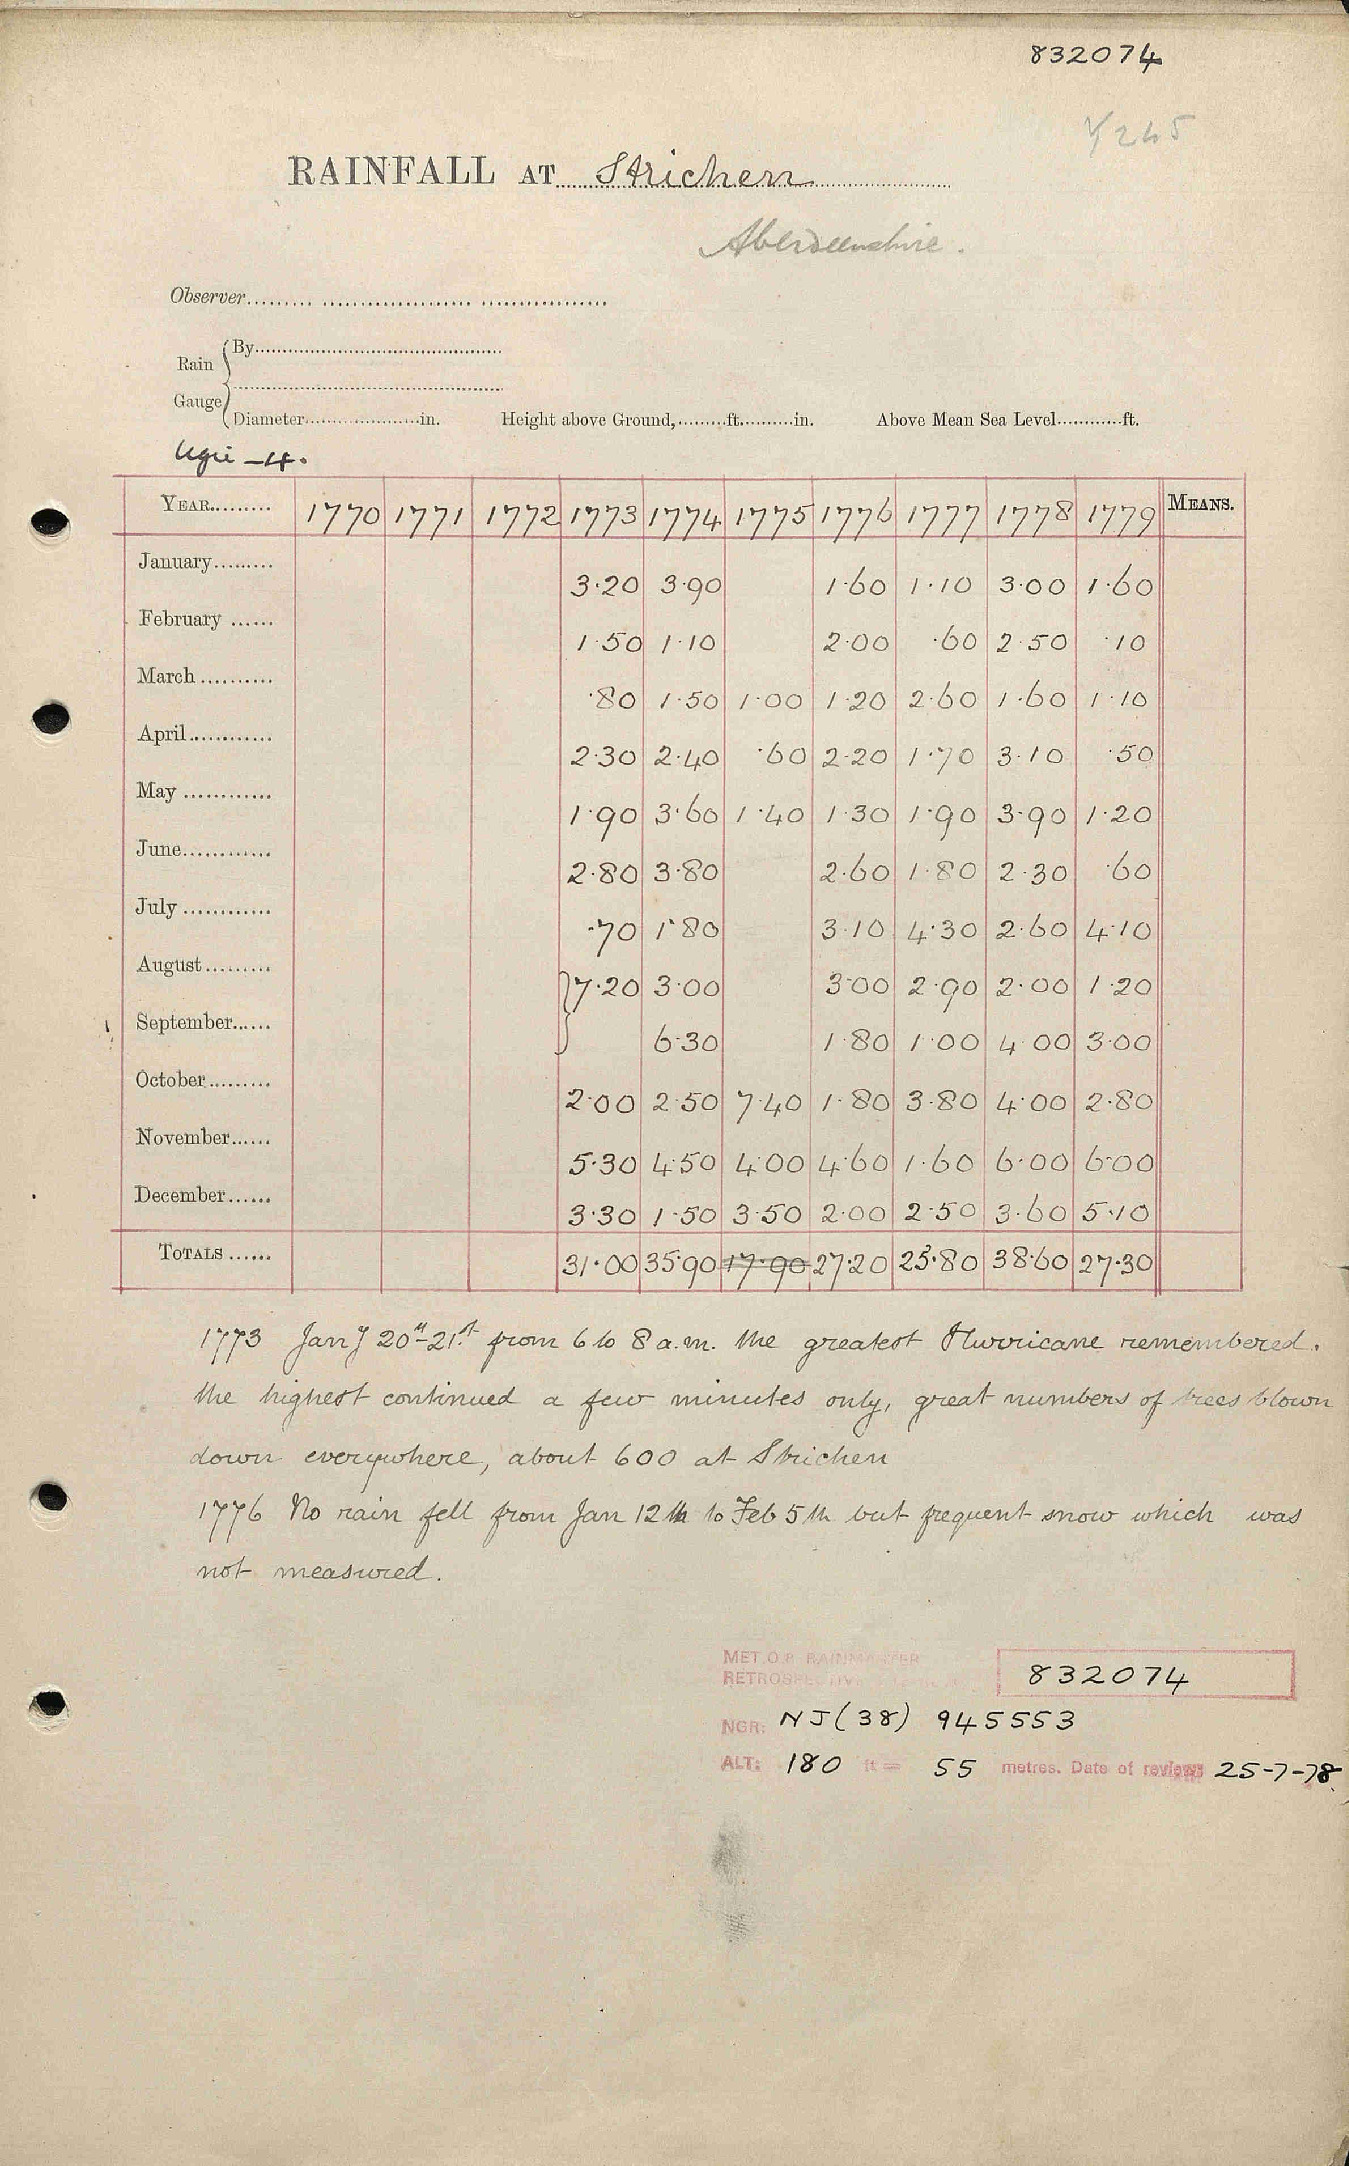 832074
RAINFALL AT Strichen
Aberdeenshire.
Observer
Rain Gauge
By
Diameter in. Height above Ground, ft. in. Above Mean Sea Level ft.
Ugie – 4.
YEAR 1770 1771 1772 1773 1774 1775 1776 1777 1778 1779 MEANS.
January 3·20 3·90 1·60 1·10 3·00 1·60
February 1·50 1·10 2·00 ·60 2·50 ·10
March ·80 1·50 1·00 1·20 2·60 1·60 1·10
April 2·30 2·40 ·60 2·20 1·70 3·10 ·50
May 1·90 3·60 1·40 1·30 1·90 3·90 1·20
June 2·80 3·80 2·60 1·80 2·30 ·60
July ·70 1·80 3·10 4·30 2·60 4·10
August 7·20 3·00 3·00 2·90 2·00 1·20
September 6·30 1·80 1·00 4·00 3·00
October 2·00 2·50 7·40 1·80 3·80 4·00 2·80
November 5·30 4·50 4·00 4·60 1·60 6·00 6·00
December 3·30 1·50 3·50 2·00 2·50 3·60 5·10
TOTALS 31·00 35·90 17·90 27·20 25·80 38·60 27·30
1773 Jany 20th–21st from 6 to 8 a.m. the greatest Hurricane remembered.
the highest continued a few minutes only, great numbers of trees blown
down everywhere, about 600 at Strichen
1776 No rain fell from Jan 12th to Feb 5th but frequent snow which was
not measured.
MET.O.8 RAINMASTER
RETROSPECTIVE 832074
NGR: NJ(38) 945553
ALT: 180 ft = 55 metres. Date of review: 25-7-78.